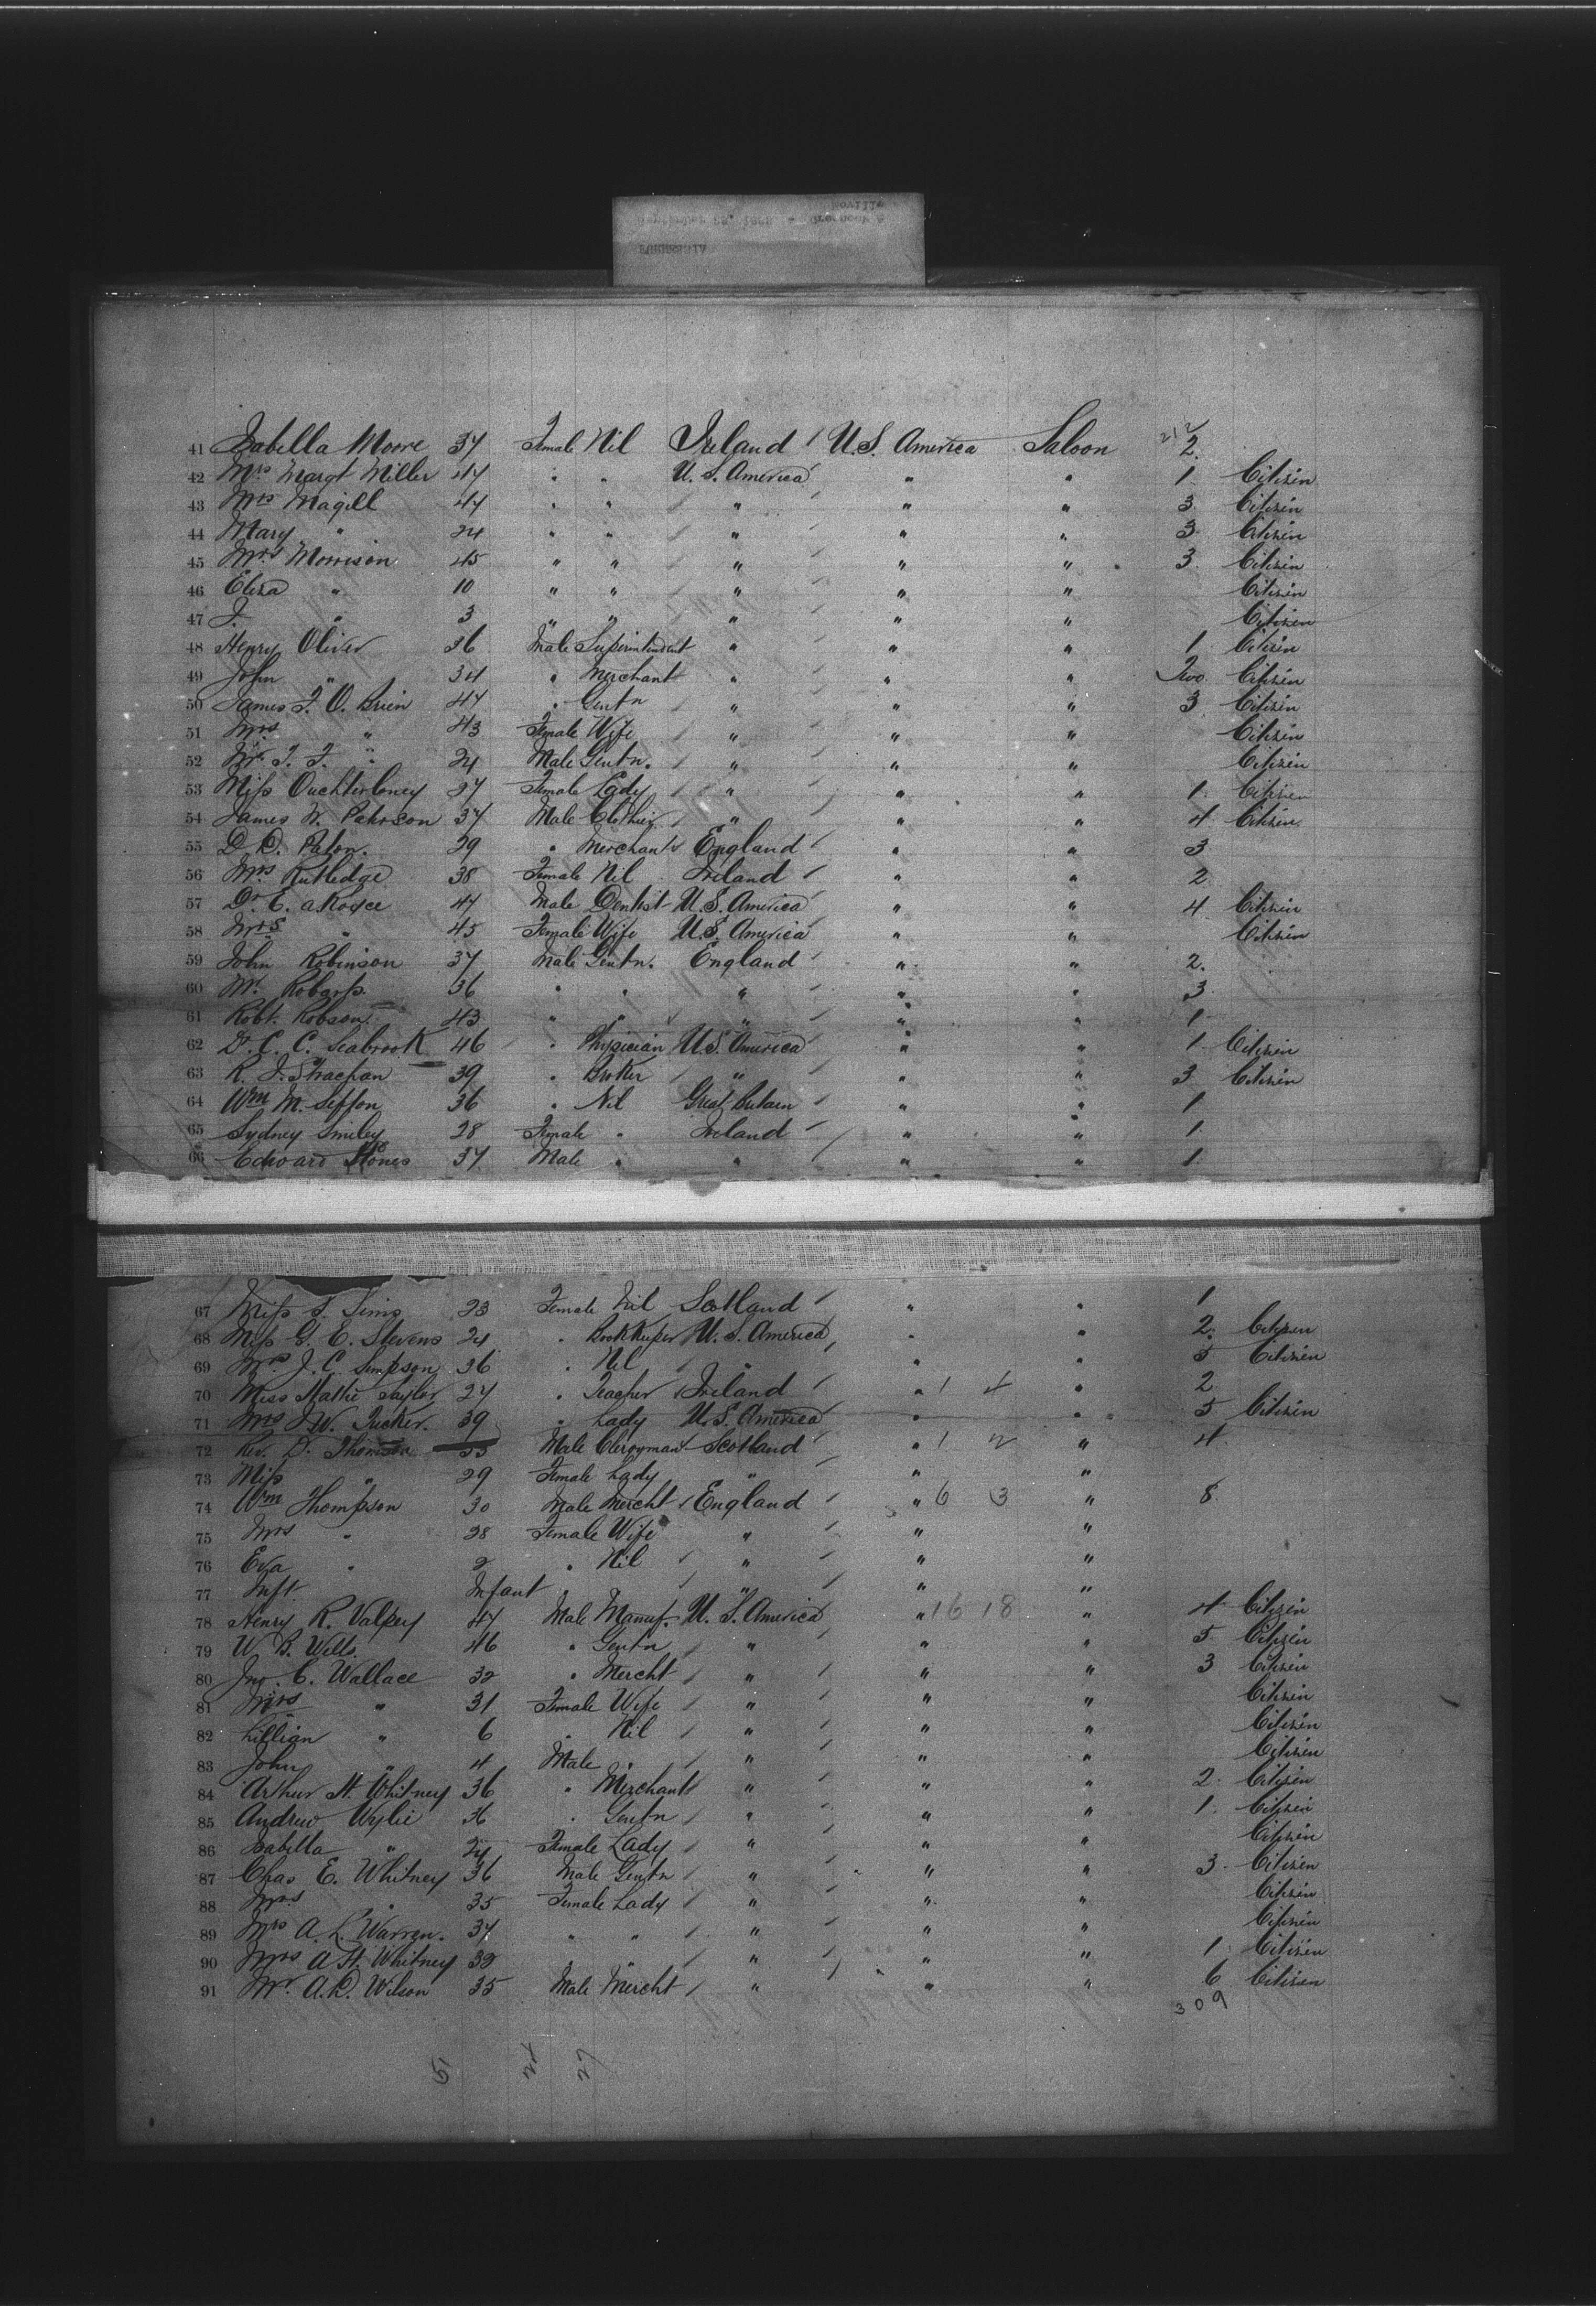 41 Isabella Moore 37 Female Nil Ireland U.S. America Saloon 2.
42 Mrs Margt Miller 47 " " U.S. America " " 1 Citizen
43 Mrs Magill 44 " " " " " 3 Citizen
44 Mary " 24 " " " " " 3 Citizen
45 Mrs Morrison 45 " " " " " 3. Citizen
46 Eliza " 10 " " " " " Citizen
47 J. " 3 " " " " " Citizen
48 Henry Oliver 36 Male Superintendent " " " 1 Citizen
49 John " 34 " Merchant " " " Two Citizen
50 James F. O. Brien 47 " Gentn " " " 3 Citizen
51 Mrs " 43 Female Wife " " " Citizen
52 Mr. " 24 Male Gentn. " " " Citizen
53 Miss Ouchterloney 37 Female Lady " " " 1 Citizen
54 James W. 37 Male Clothier " " " 4 Citizen
55 D. D. Paton. 29 " Merchant England " " 3
56 Mrs Rutledge 38 Female Nil Ireland " " 2
57 Dr. E. 47 Male Dentist U.S. America " " 4 Citizen
58 Mrs " 45 Female Wife U.S. America " " Citizen
59 John Robinson 37 Male Gentn. England " " 2.
60 Mr. 36 " " " " " 3
61 Robt. Robson 43 " " " " " 1
62 Dr. C. C. Seabrook 46 " Physician U.S. America " " 1 Citizen
63 R. J. Strachan 39 " Broker " " " 3 Citizen
64 Wm M. 36 " Nil Great Britain " " 1
65 Sydney Smiley 28 Female " Ireland " " 1
66 Edward 37 Male " " " " 1
67 Miss S. Sims 23 Female Nil Scotland " " 1
68 Miss G. E. Stevens 24 " Bookkeeper U.S. America " " 2. Citizen
69 Mrs J. C. Simpson 36 " Nil " " " 5 Citizen
70 Miss Mattie Taylor 27 " Teacher Ireland " 1 4 " 2
71 Mrs J. W. Tucker. 39 " Lady U.S. America " " 5 Citizen
72 Rev. D. Thomson Male Clergyman Scotland " 1 2 " 4
73 Miss " 29 Female Lady " " "
74 Wm Thompson 30 Male Mercht England " 6 3 " 8
75 Mrs " 28 Female Wife " " "
76 Eva " 2 " Nil " " "
77 Inft. Infant " " "
78 Henry R. Valpey 47 Male Manuf. U.S. America " 16 18 " 4 Citizen
79 W. B. Wells. 46 " Gentn " " " 5 Citizen
80 Jno. C. Wallace 32 " Mercht " " " 3 Citizen
81 Mrs " 31 Female Wife " " " Citizen
82 Lillian " 6 " Nil " " " Citizen
83 John " 4 Male " " " " Citizen
84 Arthur H. Whitney 36 " Merchant " " " 2. Citizen
85 Andrew Wylie 36 " Gentn " " " 1. Citizen
86 Isabella " 24 Female Lady " " " Citizen
87 Chas E. Whitney 36 Male Gentn " " " 3. Citizen
88 Mrs " 35 Female Lady " " " Citizen
89 Mrs A. L. Warren. 37 " " " " " Citizen
90 Mrs A H. Whitney 32 " " " " " 1 Citizen
91 Mr. A. D. Wilson 35 Male Mercht " " " 6 Citizen
309
51 24 27